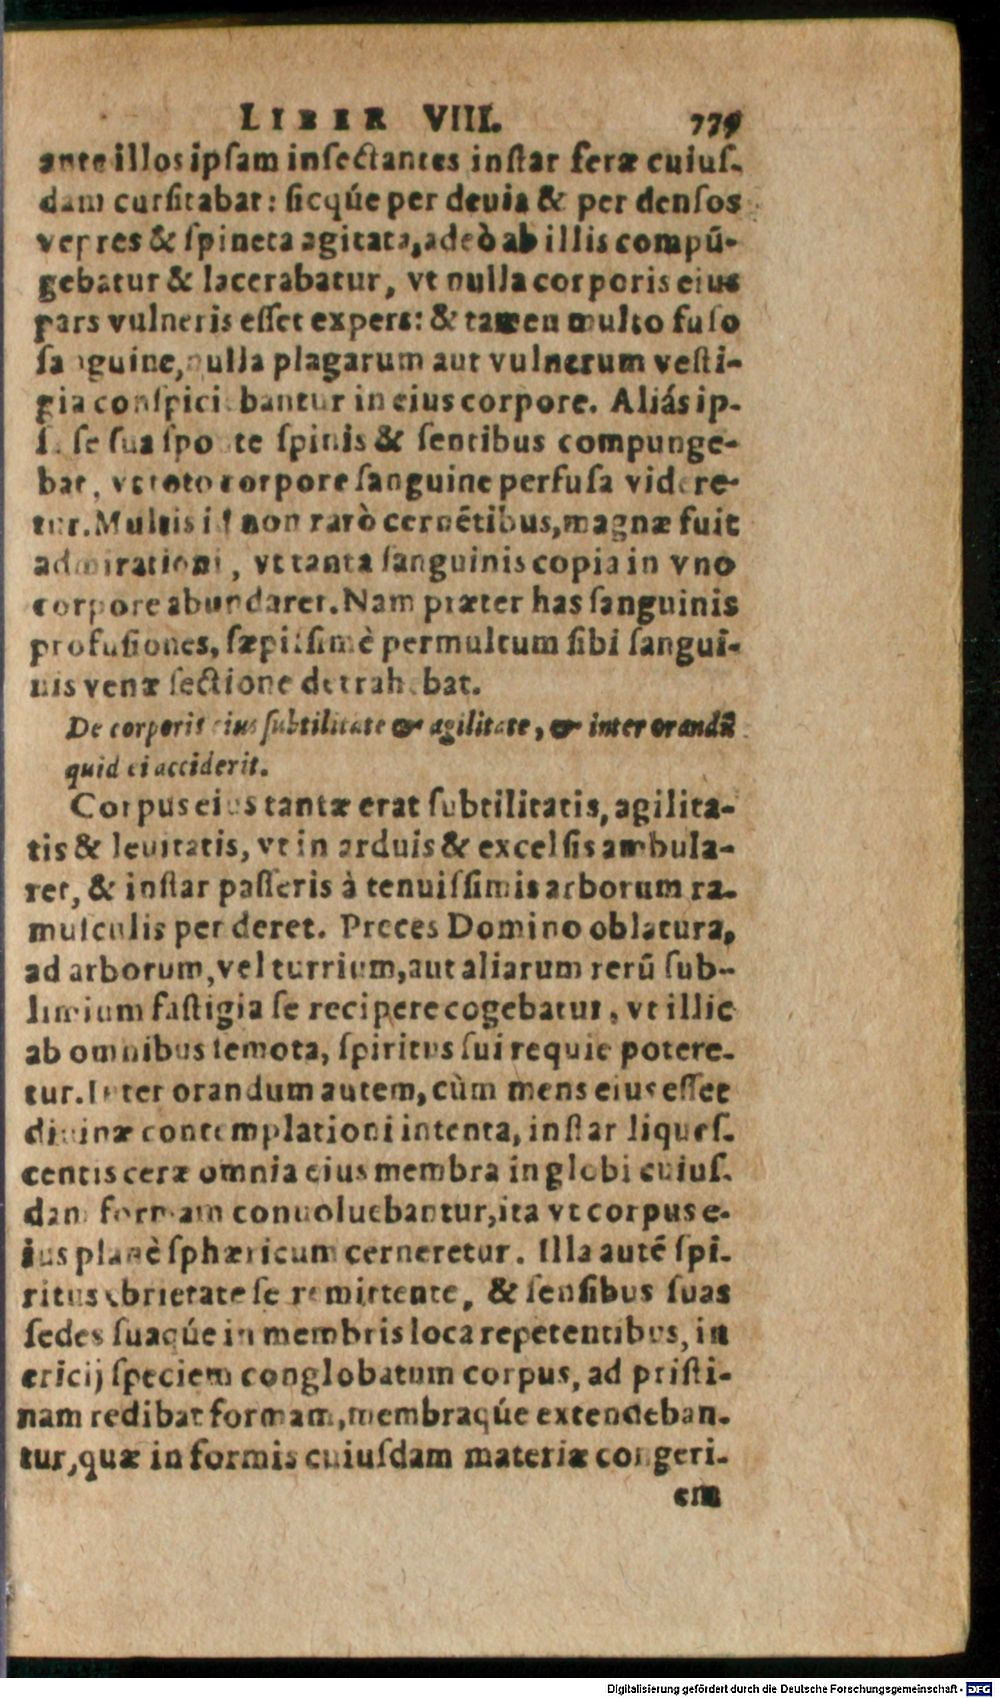 LIBER VIII. 779
ante illos ipsam insectantes instar feræ cuius-
dam cursitabat: sicq́ue per deuia & per densos
vepres & spineta agitata, adeò ab illis compū-
gebatur & lacerabatur, vt nulla corporis eius
pars vulneris esset expers: & tamen multo fuso
sanguine, nulla plagarum aut vulnerum vesti-
gia conspiciebantur in eius corpore. Aliás ip-
sa se sua sponte spinis & sentibus compunge-
bat, vt toto corpore sanguine perfusa videre-
tur. Multis id non rarò cernētibus, magnæ fuit
admirationi, vt tanta sanguinis copia in vno
corpore abundaret. Nam præter has sanguinis
profusiones, sæpissimè permultum sibi sangui-
nis venæ sectione detrahebat.
De corporis eius subtilitate & agilitate, & inter orandū
quid ei acciderit.
Corpus eius tantæ erat subtilitatis, agilita-
tis & leuitatis, vt in arduis & excelsis ambula-
ret, & instar passeris à tenuissimis arborum ra-
musculis penderet. Preces Domino oblatura,
ad arborum, vel turrium, aut aliarum rerū sub-
limium fastigia se recipere cogebatur, vt illic
ab omnibus remota, spiritus sui requie potere-
tur. Inter orandum autem, cùm mens eius esset
diuinæ contemplationi intenta, instar liques-
centis ceræ omnia eius membra in globi cuius-
dam formam conuoluebantur, ita vt corpus e-
ius planè sphæricum cerneretur. Illa autē spi-
ritus ebrietate se remittente, & sensibus suas
sedes suaq́ue in membris loca repetentibus, in
ericij speciem conglobatum corpus, ad pristi-
nam redibat formam, membraq́ue extendeban-
tur, quæ informis cuiusdam materiæ congeri-
em
Digitalisierung gefördert durch die Deutsche Forschungsgemeinschaft - DFG